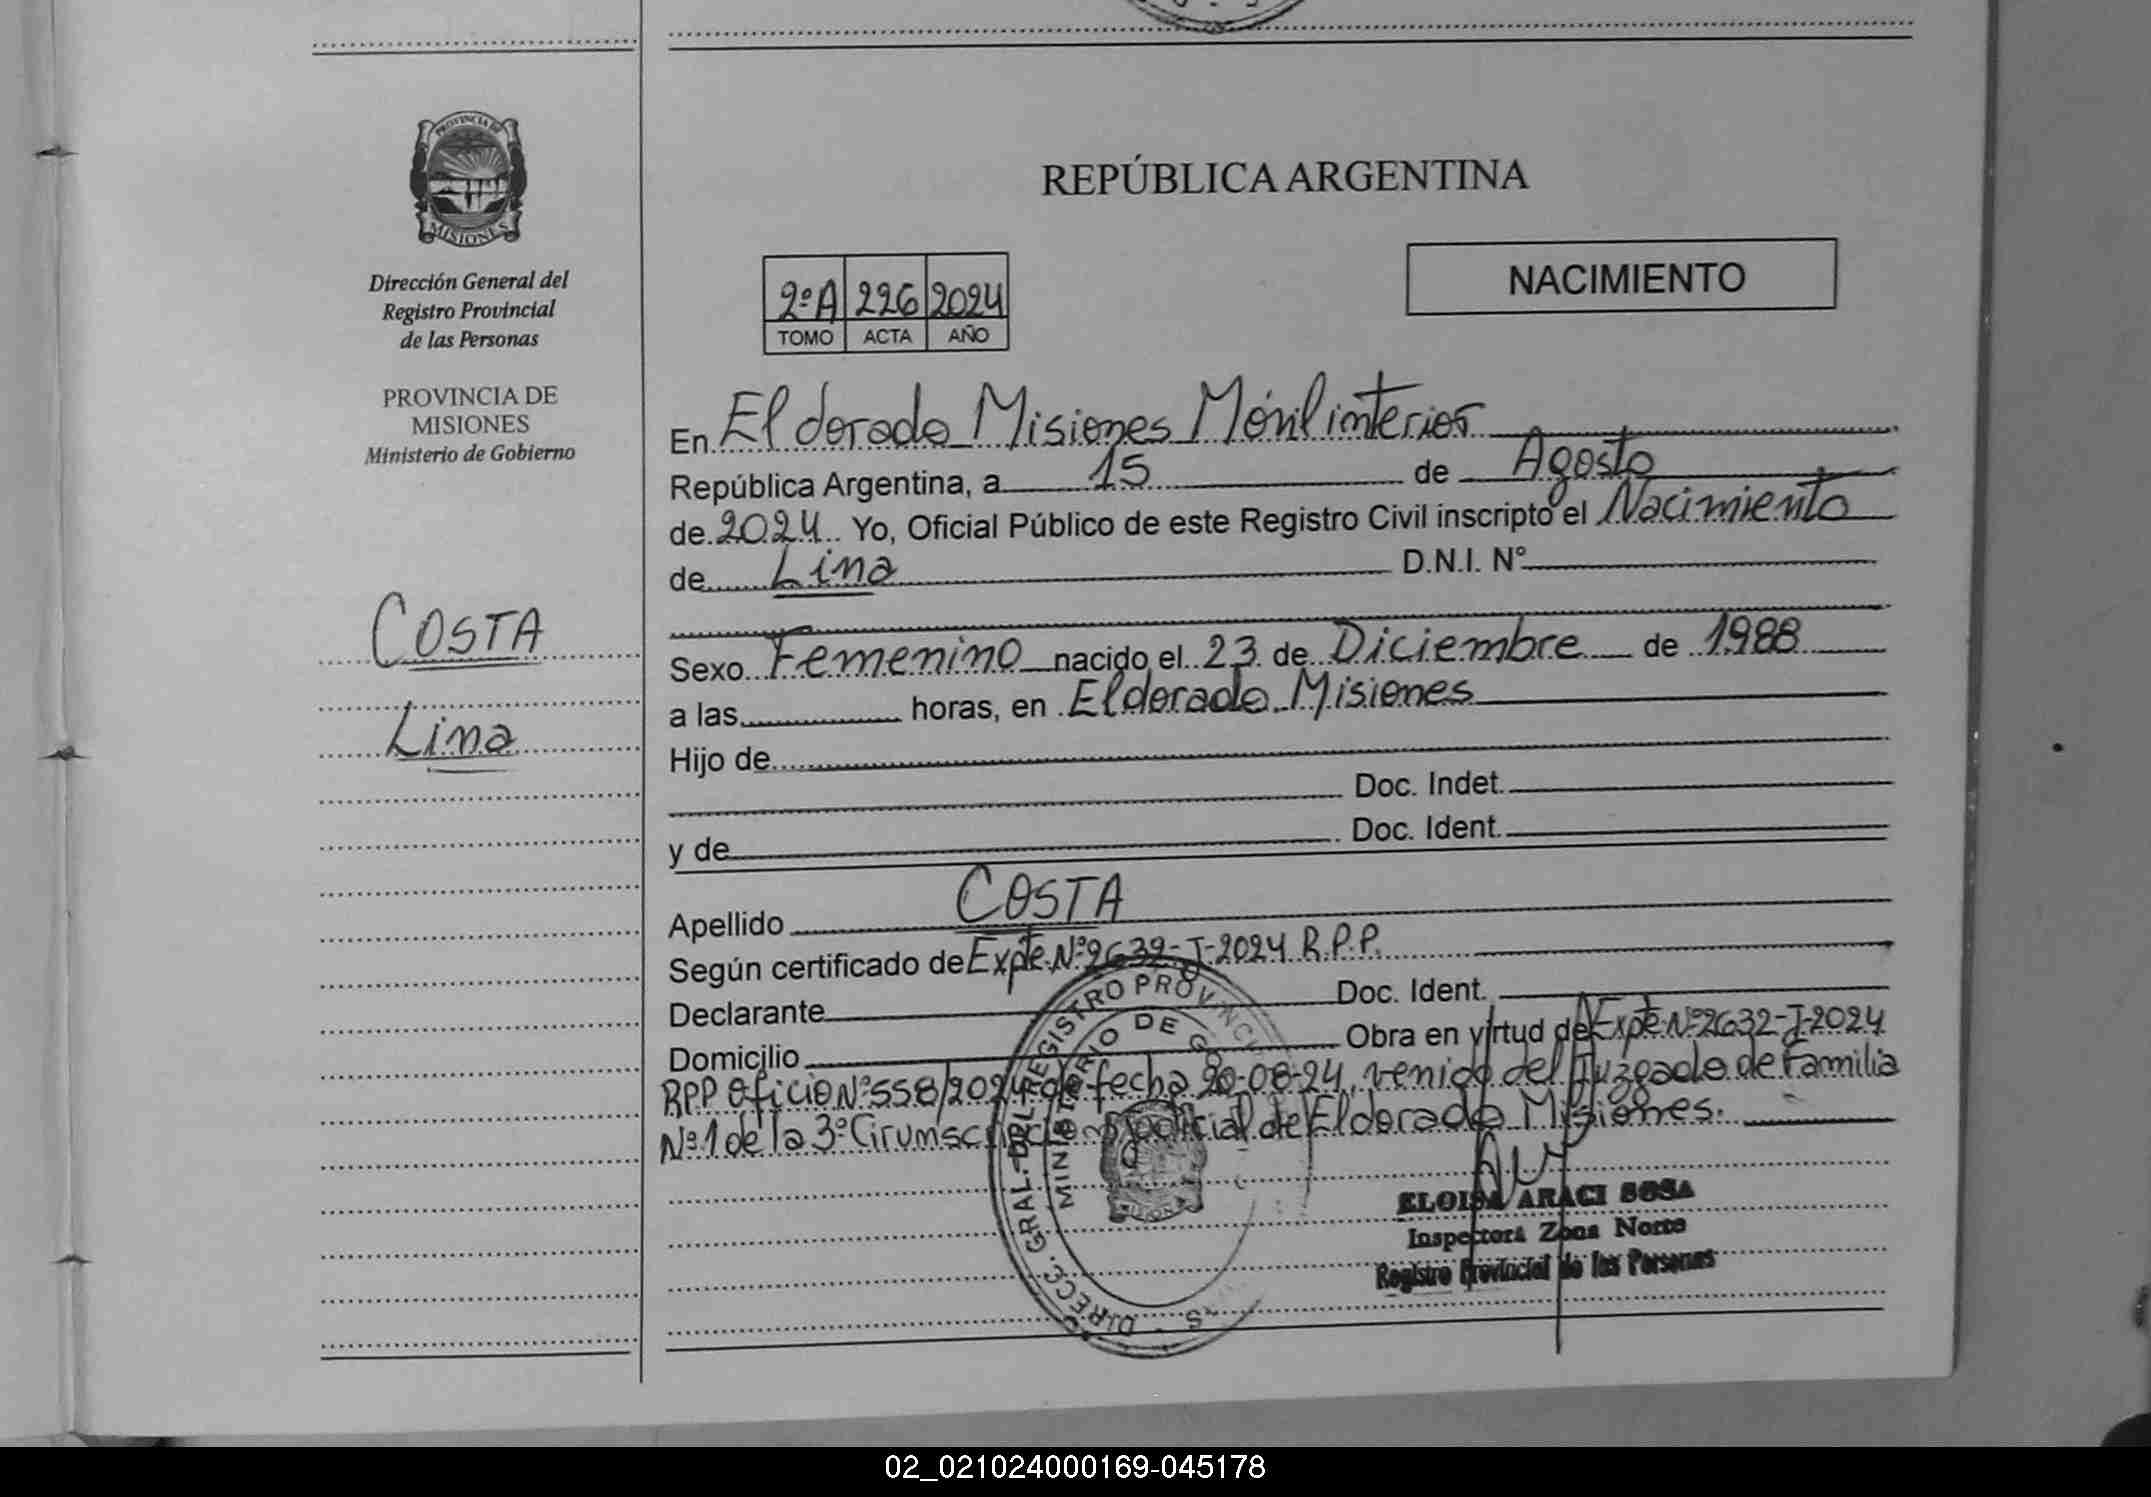 PROVINCIA DE
MISIONES
Dirección General del
Registro Provincial
de las Personas
PROVINCIA DE
MISIONES
Ministerio de Gobierno
COSTA
Lina
REPÚBLICA ARGENTINA
NACIMIENTO
2ºA 226 2024
TOMO ACTA AÑO
En Eldorado Misiones Móvil interior
República Argentina, a 15 de Agosto
de 2024 Yo, Oficial Público de este Registro Civil inscripto el Nacimiento
de Lina D.N.I. Nº
Sexo Femenino nacido el 23 de Diciembre de 1988
a las horas, en Eldorado Misiones
Hijo de
Doc. Indet.
y de Doc. Ident.
Apellido COSTA
Según certificado de Expte Nº 2632-J-2024 R.P.P.
Declarante Doc. Ident.
Domicilio Obra en virtud de Expte Nº 2632-J-2024
RPP Oficio Nº 558/2024 de fecha 20-08-24, venido del Juzgado de Familia
Nº 1 de la 3º Cirumscripcion Judicial de Eldorado Misiones.
DIRECC. GRAL. DEL REGISTRO PROVINC
MINISTERIO DE G
ELOISA ARACI SOSA
Inspectora Zona Norte
Registro Provincial de las Personas
02_021024000169-045178